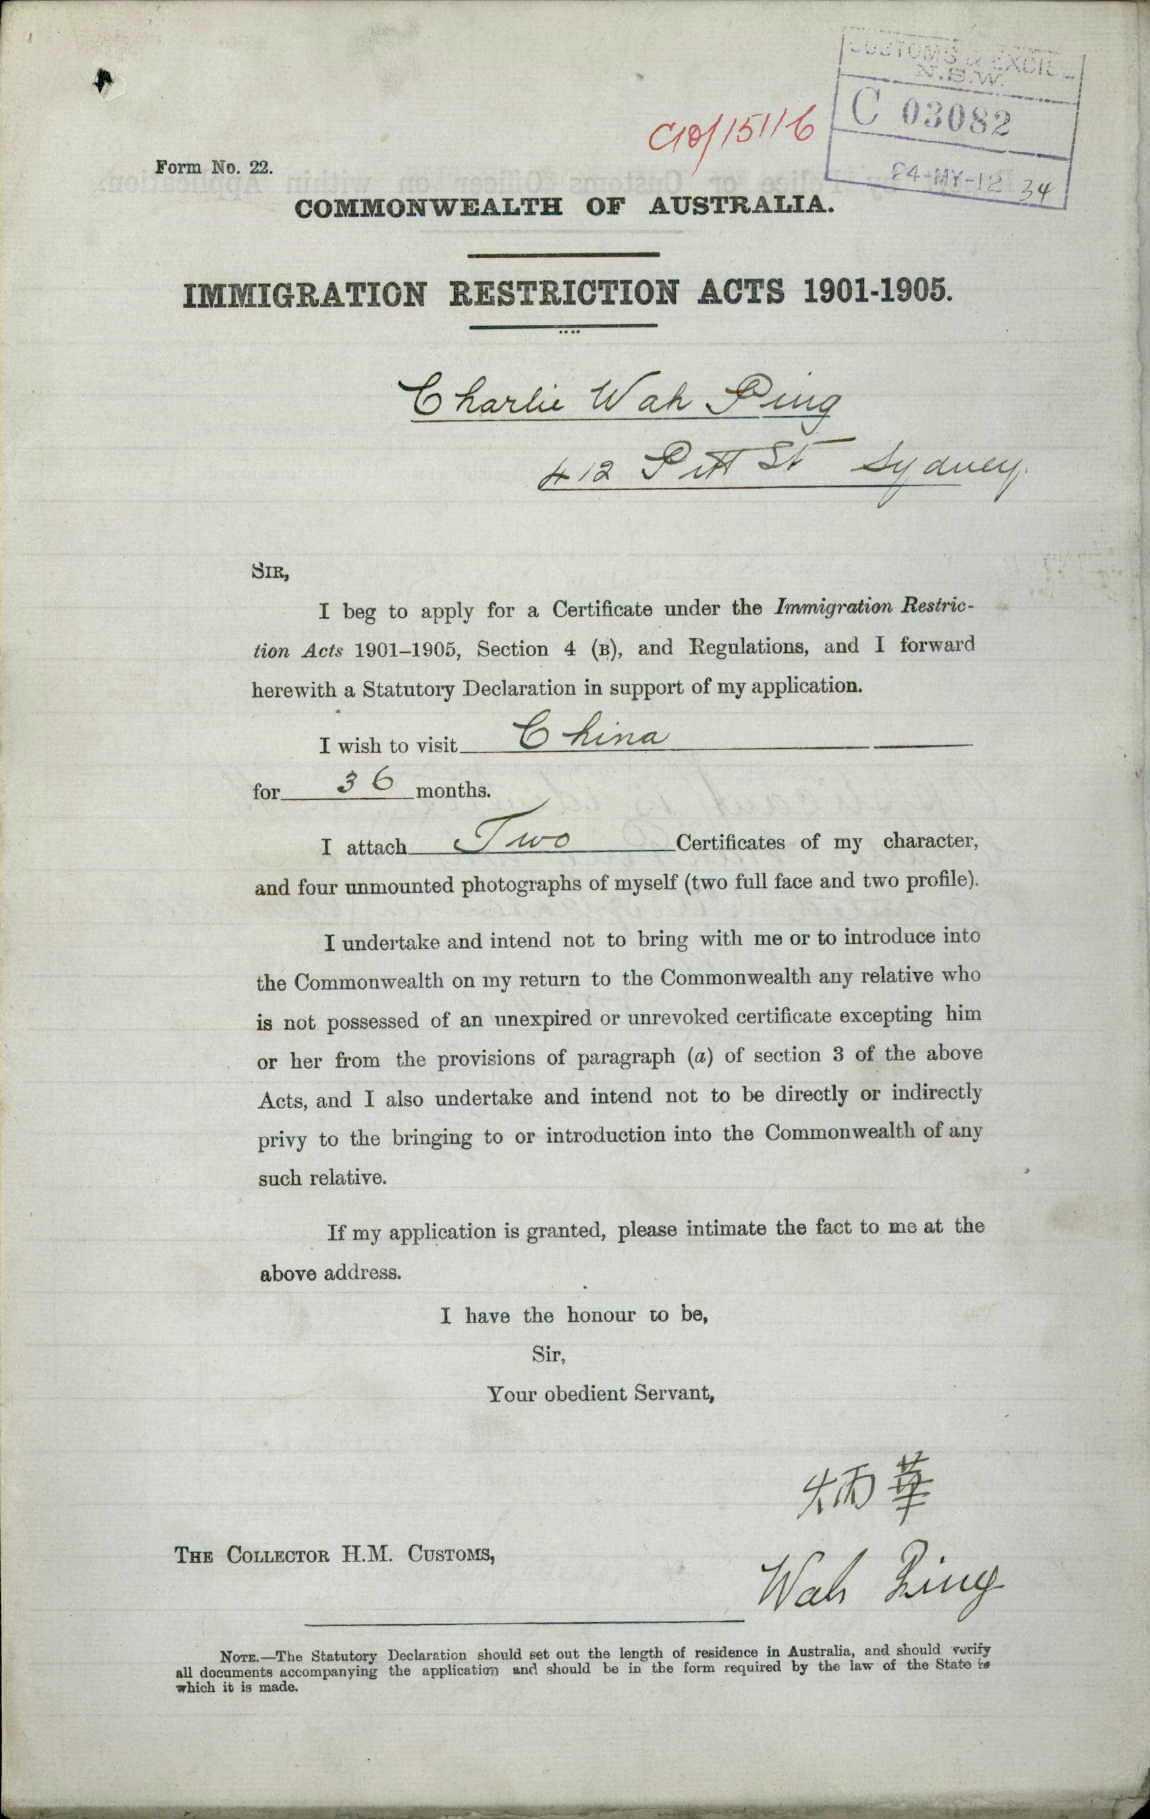 CUSTOMS & EXCISE
N.S.W.
C 03082
24-MY-12 34
C10/15116
Form No. 22.
COMMONWEALTH OF AUSTRALIA.
IMMIGRATION RESTRICTION ACTS 1901-1905.
Charlie Wah Ping
412 Pitt St Sydney.
SIR,
I beg to apply for a Certificate under the Immigration Restric-
tion Acts 1901–1905, Section 4 (B), and Regulations, and I forward
herewith a Statutory Declaration in support of my application.
I wish to visit China
for 36 months.
I attach Two Certificates of my character,
and four unmounted photographs of myself (two full face and two profile).
I undertake and intend not to bring with me or to introduce into
the Commonwealth on my return to the Commonwealth any relative who
is not possessed of an unexpired or unrevoked certificate excepting him
or her from the provisions of paragraph (a) of section 3 of the above
Acts, and I also undertake and intend not to be directly or indirectly
privy to the bringing to or introduction into the Commonwealth of any
such relative.
If my application is granted, please intimate the fact to me at the
above address.
I have the honour to be,
Sir,
Your obedient Servant,
炳華
THE COLLECTOR H.M. CUSTOMS,
Wah Ping
NOTE.—The Statutory Declaration should set out the length of residence in Australia, and should verify
all documents accompanying the application and should be in the form required by the law of the State in
which it is made.